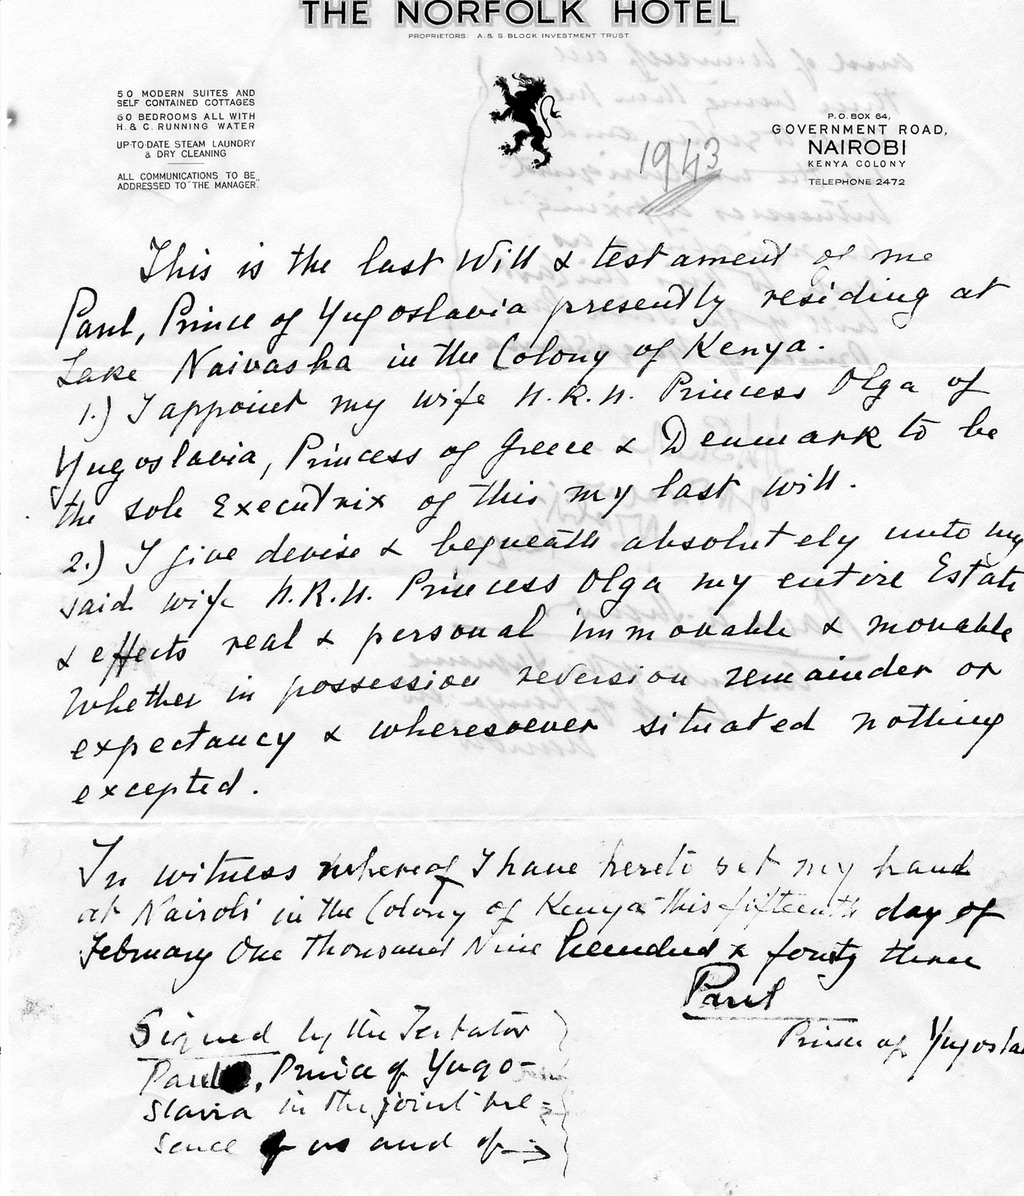 THE NORFOLK HOTEL
PROPRIETORS: A. & S. BLOCK INVESTMENT TRUST.
50 MODERN SUITES AND
SELF CONTAINED COTTAGES
60 BEDROOMS ALL WITH
H. & C. RUNNING WATER
UP-TO-DATE STEAM LAUNDRY
& DRY CLEANING
ALL COMMUNICATIONS TO BE
ADDRESSED TO "THE MANAGER"
P.O. BOX 64,
GOVERNMENT ROAD,
NAIROBI
KENYA COLONY
TELEPHONE 2472
1943
This is the last Will & testament of me
Paul, Prince of Yugoslavia presently residing at
Lake Naivasha in the Colony of Kenya.
1.) I appoint my wife H.R.H. Princess Olga of
Yugoslavia, Princess of Greece & Denmark to be
the sole Executrix of this my last Will.
2.) I give devise & bequeath absolutely unto my
said wife H.R.H. Princess Olga my entire Estate
& effects real & personal immovable & movable
whether in possession reversion remainder or
expectancy & wheresoever situated nothing
excepted.
In witness whereof I have hereto set my hand
at Nairobi in the Colony of Kenya this fifteenth day of
February One thousand Nine hundred & fourty three
Paul
Prince of Yugosla
Signed by the Testator
Paul, Prince of Yugo-
slavia in the joint pre=
sence of us and of →